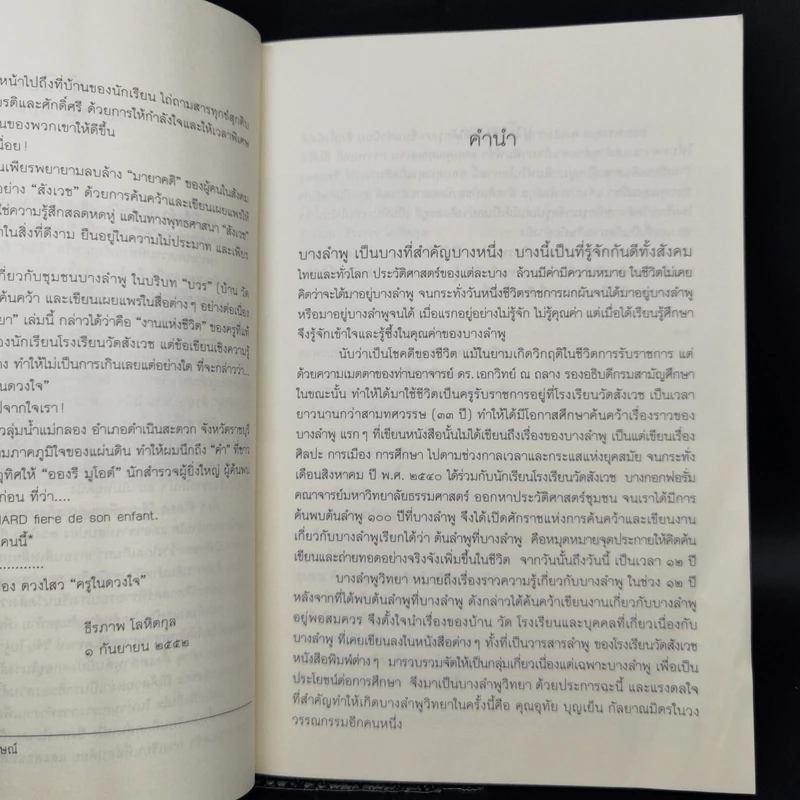 หน้าไปถึงที่บ้านของนักเรียน ไถ่ถามสารทุกข์สุกดิบ
ยรติและศักดิ์ศรี ด้วยการให้กำลังใจและให้เวลาพิเศษ
นของพวกเขาให้ดีขึ้น
นื่อย!
นเพียรพยายามลบล้าง "มายาคติ" ของผู้คนในสังคม
อย่าง "สังเวช" ด้วยการค้นคว้าและเขียนเผยแพร่ให้
ใช่ความรู้สึกสลดหดหู่ แต่ในทางพุทธศาสนา "สังเวช"
ำในสิ่งที่ดีงาม ยืนอยู่ในความไม่ประมาท และเพียร
กี่ยวกับชุมชนบางลำพู ในบริบท "บวร" (บ้าน วัด
ค้นคว้า และเขียนเผยแพร่ในสื่อต่างๆ อย่างต่อเนื่อง
ยา" เล่มนี้ กล่าวได้ว่าคือ "งานแห่งชีวิต" ของครูที่แท้
องนักเรียนโรงเรียนวัดสังเวช แต่ข้อเขียนเชิงความรู้
ง ทำให้ไม่เป็นการเกินเลยแต่อย่างใด ที่จะกล่าวว่า...
นดวงใจ"
ปจากใจเรา!
วลุ่มน้ำแม่กลอง อำเภอดำเนินสะดวก จังหวัดราชบุรี
มภาคภูมิใจของแผ่นดิน ทำให้ผมนึกถึง "คำ" ที่ชาว
ุทิศให้ "อองรี มูโอต์" นักสำรวจผู้ยิ่งใหญ่ ผู้ค้นพบ
ก่อน ที่ว่า....
HARD fiere de son enfant.
คนนี้*
............
อง ดวงไสว "ครูในดวงใจ"
ธีรภาพ โลหิตกุล
๑ กันยายน ๒๕๕๒
ษณ์
คำนำ
บางลำพู เป็นบางที่สำคัญบางหนึ่ง บางนี้เป็นที่รู้จักกันดีทั้งสังคม
ไทยและทั่วโลก ประวัติศาสตร์ของแต่ละบาง ล้วนมีค่ามีความหมาย ในชีวิตไม่เคย
คิดว่าจะได้มาอยู่บางลำพู จนกระทั่งวันหนึ่งชีวิตราชการผกผันจนได้มาอยู่บางลำพู
หรือมาอยู่บางลำพูจนได้ เมื่อแรกอยู่อย่างไม่รู้จัก ไม่รู้คุณค่า แต่เมื่อได้เรียนรู้ศึกษา
จึงรู้จักเข้าใจและรู้ซึ้งในคุณค่าของบางลำพู
นับว่าเป็นโชคดีของชีวิต แม้ในยามเกิดวิกฤติในชีวิตการรับราชการ แต่
ด้วยความเมตตาของท่านอาจารย์ ดร.เอกวิทย์ ณ ถลาง รองอธิบดีกรมสามัญศึกษา
ในขณะนั้น ทำให้ได้มาใช้ชีวิตเป็นครูรับราชการอยู่ที่โรงเรียนวัดสังเวช เป็นเวลา
ยาวนานกว่าสามทศวรรษ (๓๓ ปี) ทำให้ได้มีโอกาสศึกษาค้นคว้าเรื่องราวของ
บางลำพู แรกๆ ที่เขียนหนังสือนั้นไม่ได้เขียนถึงเรื่องของบางลำพู เป็นแต่เขียนเรื่อง
ศิลปะ การเมือง การศึกษา ไปตามช่วงกาลเวลาและกระแสแห่งยุคสมัย จนกระทั่ง
เดือนสิงหาคม ปี พ.ศ. ๒๕๔๐ ได้ร่วมกับนักเรียนโรงเรียนวัดสังเวช บางกอกฟอรั่ม
คณาจารย์มหาวิทยาลัยธรรมศาสตร์ ออกหาประวัติศาสตร์ชุมชน จนเราได้มีการ
ค้นพบต้นลำพู ๑๐๐ ปีที่บางลำพู จึงได้เปิดศักราชแห่งการค้นคว้าและเขียนงาน
เกี่ยวกับบางลำพูเรียกได้ว่า ต้นลำพูที่บางลำพู คือหมุดหมายจุดประกายให้คิดค้น
เขียนและถ่ายทอดอย่างจริงจังเพิ่มขึ้นในชีวิต จากวันนั้นถึงวันนี้ เป็นเวลา ๑๒ ปี
บางลำพูวิทยา หมายถึงเรื่องราวความรู้เกี่ยวกับบางลำพู ในช่วง ๑๒ ปี
หลังจากที่ได้พบต้นลำพูที่บางลำพู ดังกล่าวได้ค้นคว้าเขียนงานเกี่ยวกับบางลำพู
อยู่พอสมควร จึงตั้งใจนำเรื่องของบ้าน วัด โรงเรียนและบุคคลที่เกี่ยวเนื่องกับ
บางลำพู ที่เคยเขียนลงในหนังสือต่างๆ ทั้งที่เป็นวารสารลำพู ของโรงเรียนวัดสังเวช
หนังสือพิมพ์ต่างๆ มารวบรวมจัดให้เป็นกลุ่มเกี่ยวเนื่องแต่เฉพาะบางลำพู เพื่อเป็น
ประโยชน์ต่อการศึกษา จึงมาเป็นบางลำพูวิทยา ด้วยประการฉะนี้ และแรงดลใจ
ที่สำคัญทำให้เกิดบางลำพูวิทยาในครั้งนี้คือ คุณอุทัย บุญเย็น กัลยาณมิตรในวง
วรรณกรรมอีกคนหนึ่ง